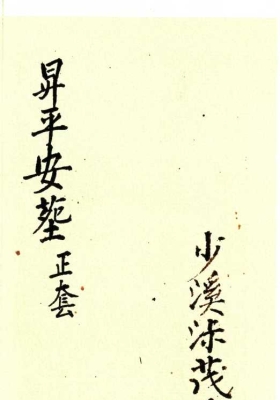 少溪沐茂
昇平安塟正套